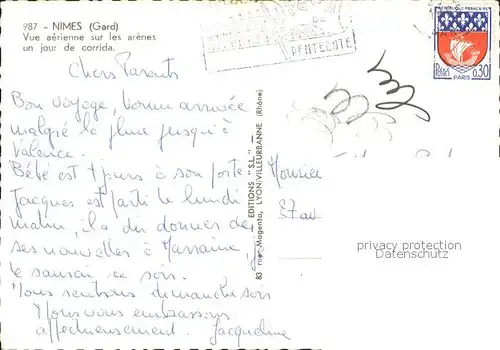 987 - NIMES (Gard)
Vue aérienne sur les arènes
un jour de corrida.
PENTECOTE
REPUBLIQUE FRANCAISE
POSTES 0,30
PARIS
Chers Parents
Bon voyage, bonne arrivée
malgré la pluie jusqu'à
Valence.
Bébé est tjours à son poste
Jacques est parti le lundi
matin, il a du donner de
ses nouvelles à Marraine, je
le saurai ce soir.
Nous rentrons dimanche soir
Nous vous embrassons
affectueusement. Jacqueline
EDITIONS "S.L."
83 rue Magenta, LYON-VILLEURBANNE (Rhône)
privacy protection
Datenschutz